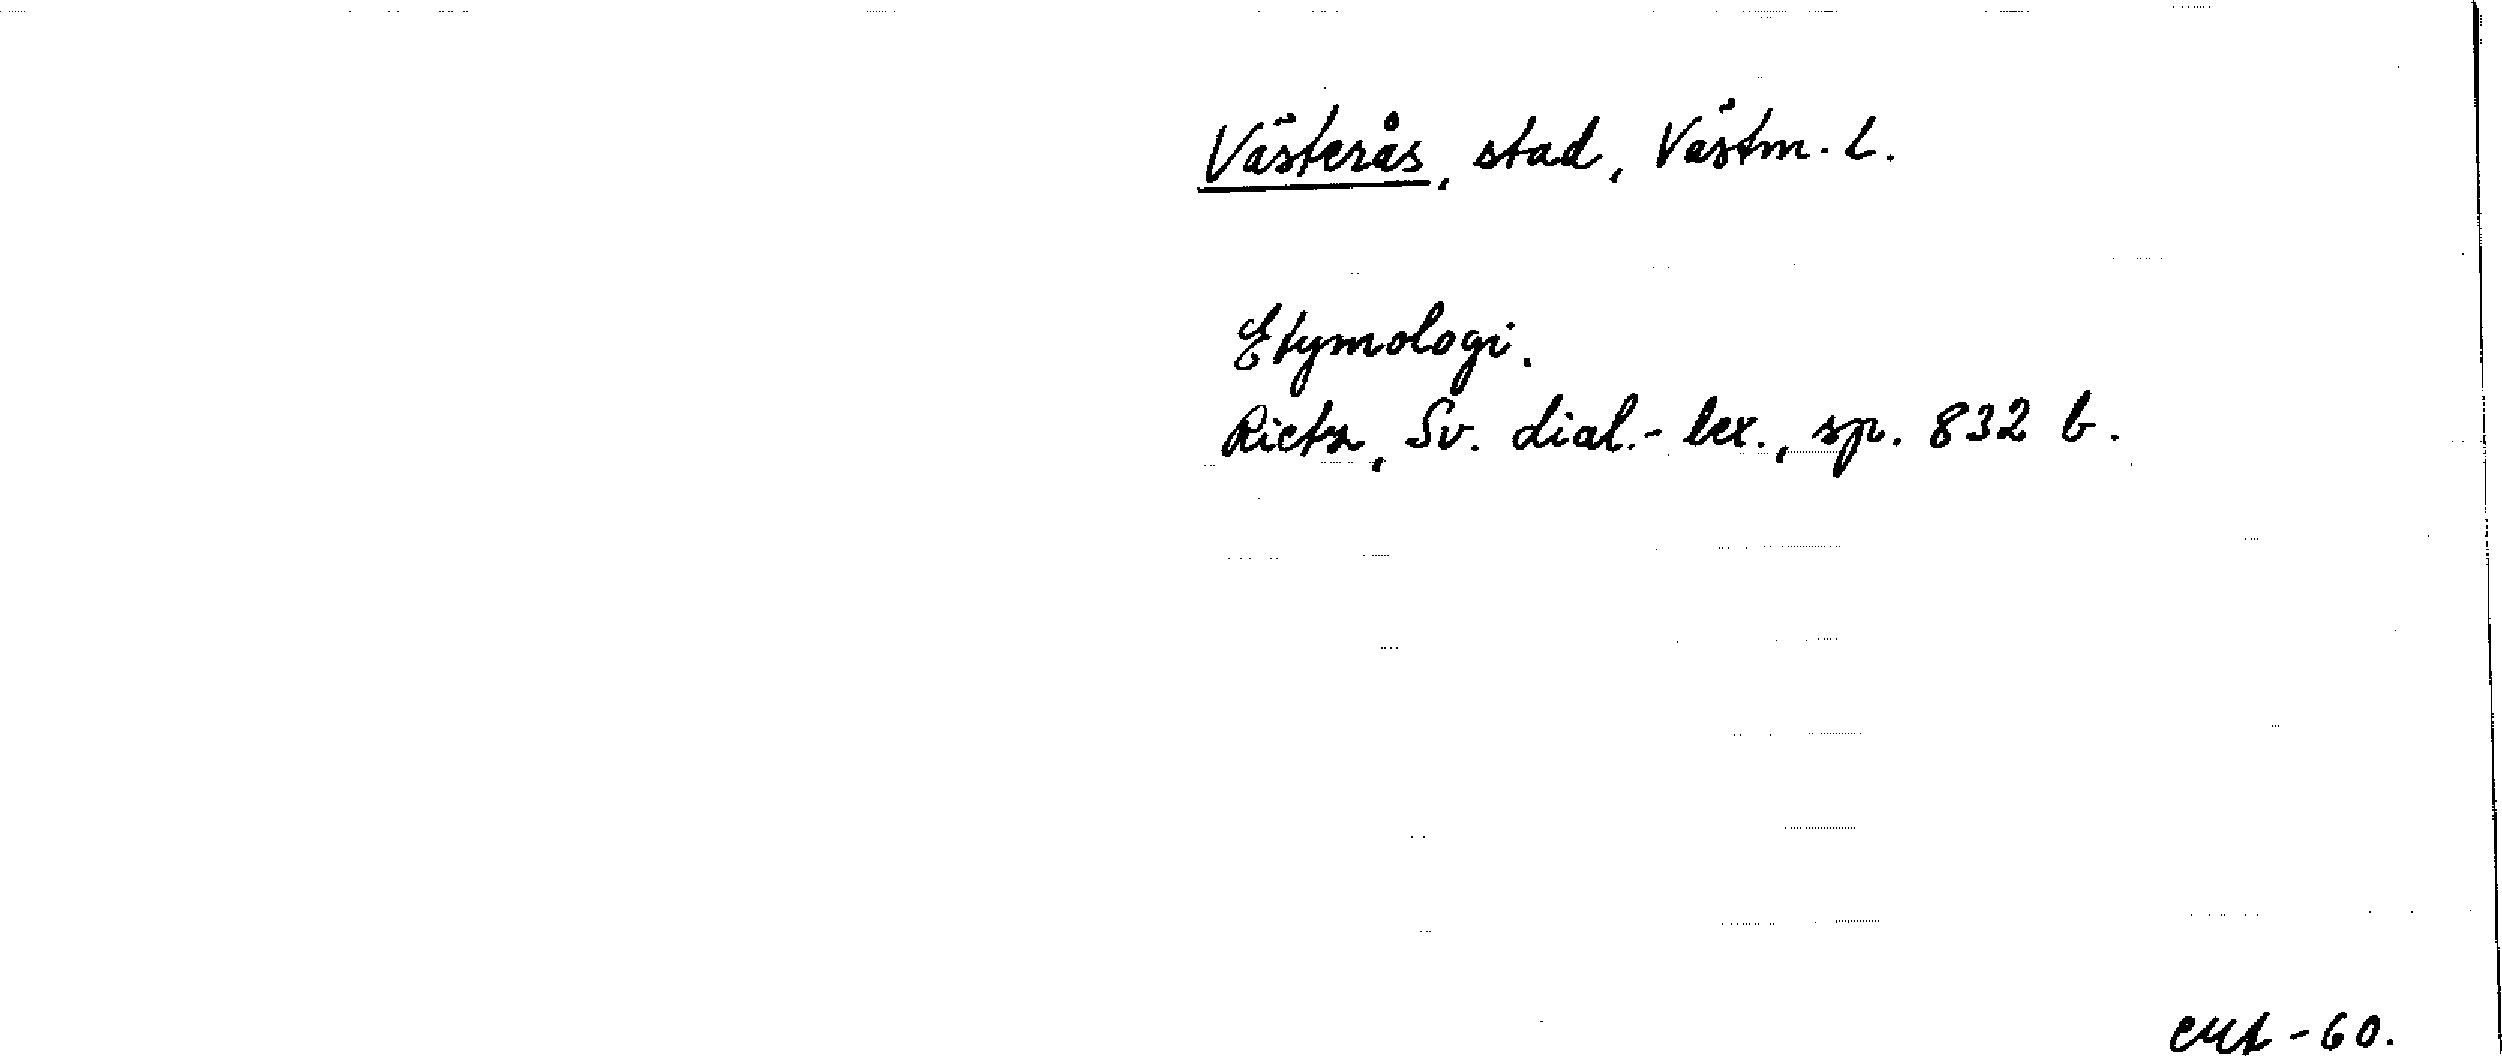 Västerås, stad, Västm. l.
Etymologi.
Rietz, Sv. dial.-lex., sp. 832 b.
-60.